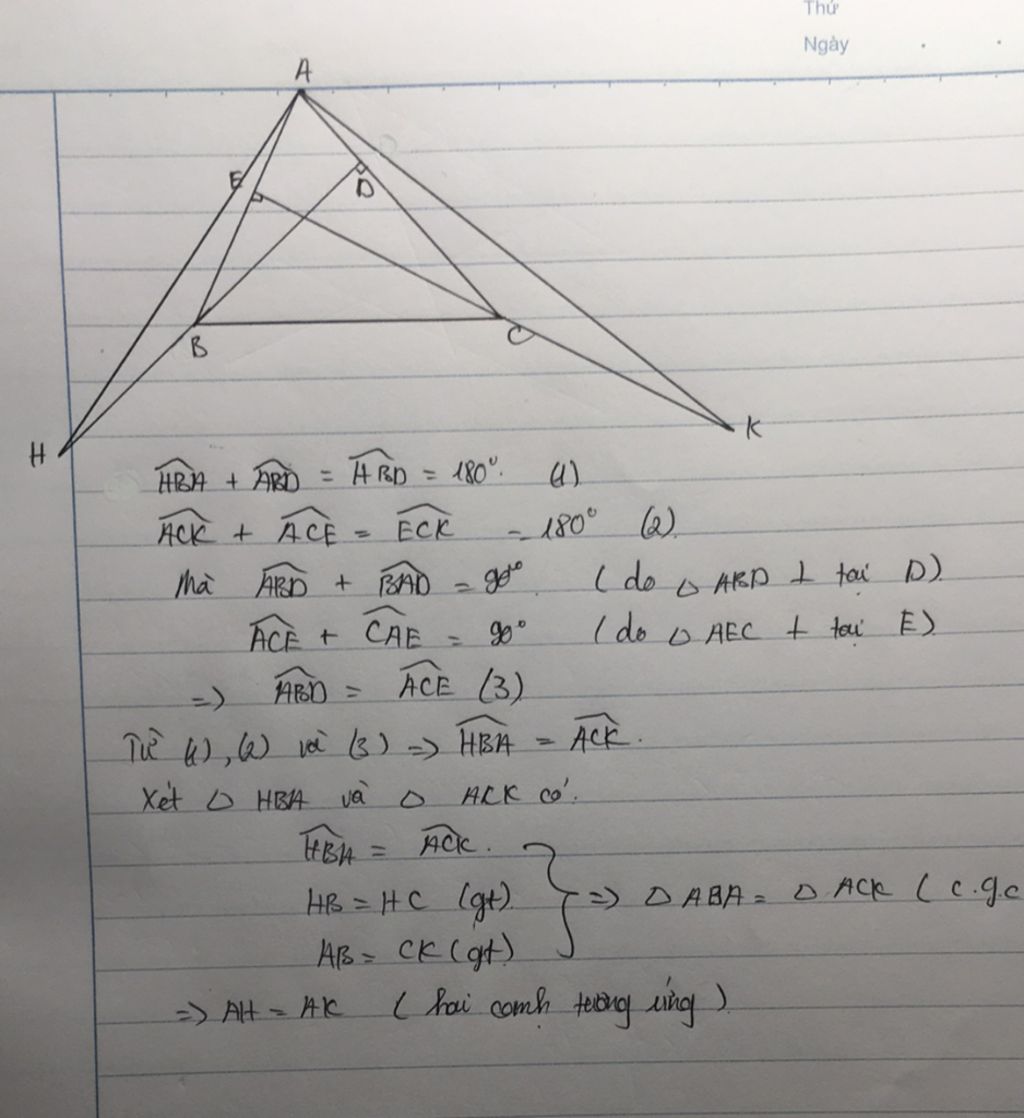 Thứ
Ngày
A
E
D
B
C
H
K
HBA + ABD = HBD = 180°. (1)
ACK + ACE = ECK = 180° (2)
Mà ABD + BAD = 90° (do △ ABD ⊥ tại D)
ACE + CAE = 90° (do △ AEC ⊥ tại E)
=> ABD = ACE (3)
Từ (1), (2) và (3) => HBA = ACK.
Xét △ HBA và △ ACK có:
HBA = ACK.
HB = HC (gt)
=> △ ABA = △ ACK (c.g.c
AB = CK (gt)
=> AH = AK (hai cạnh tương ứng)